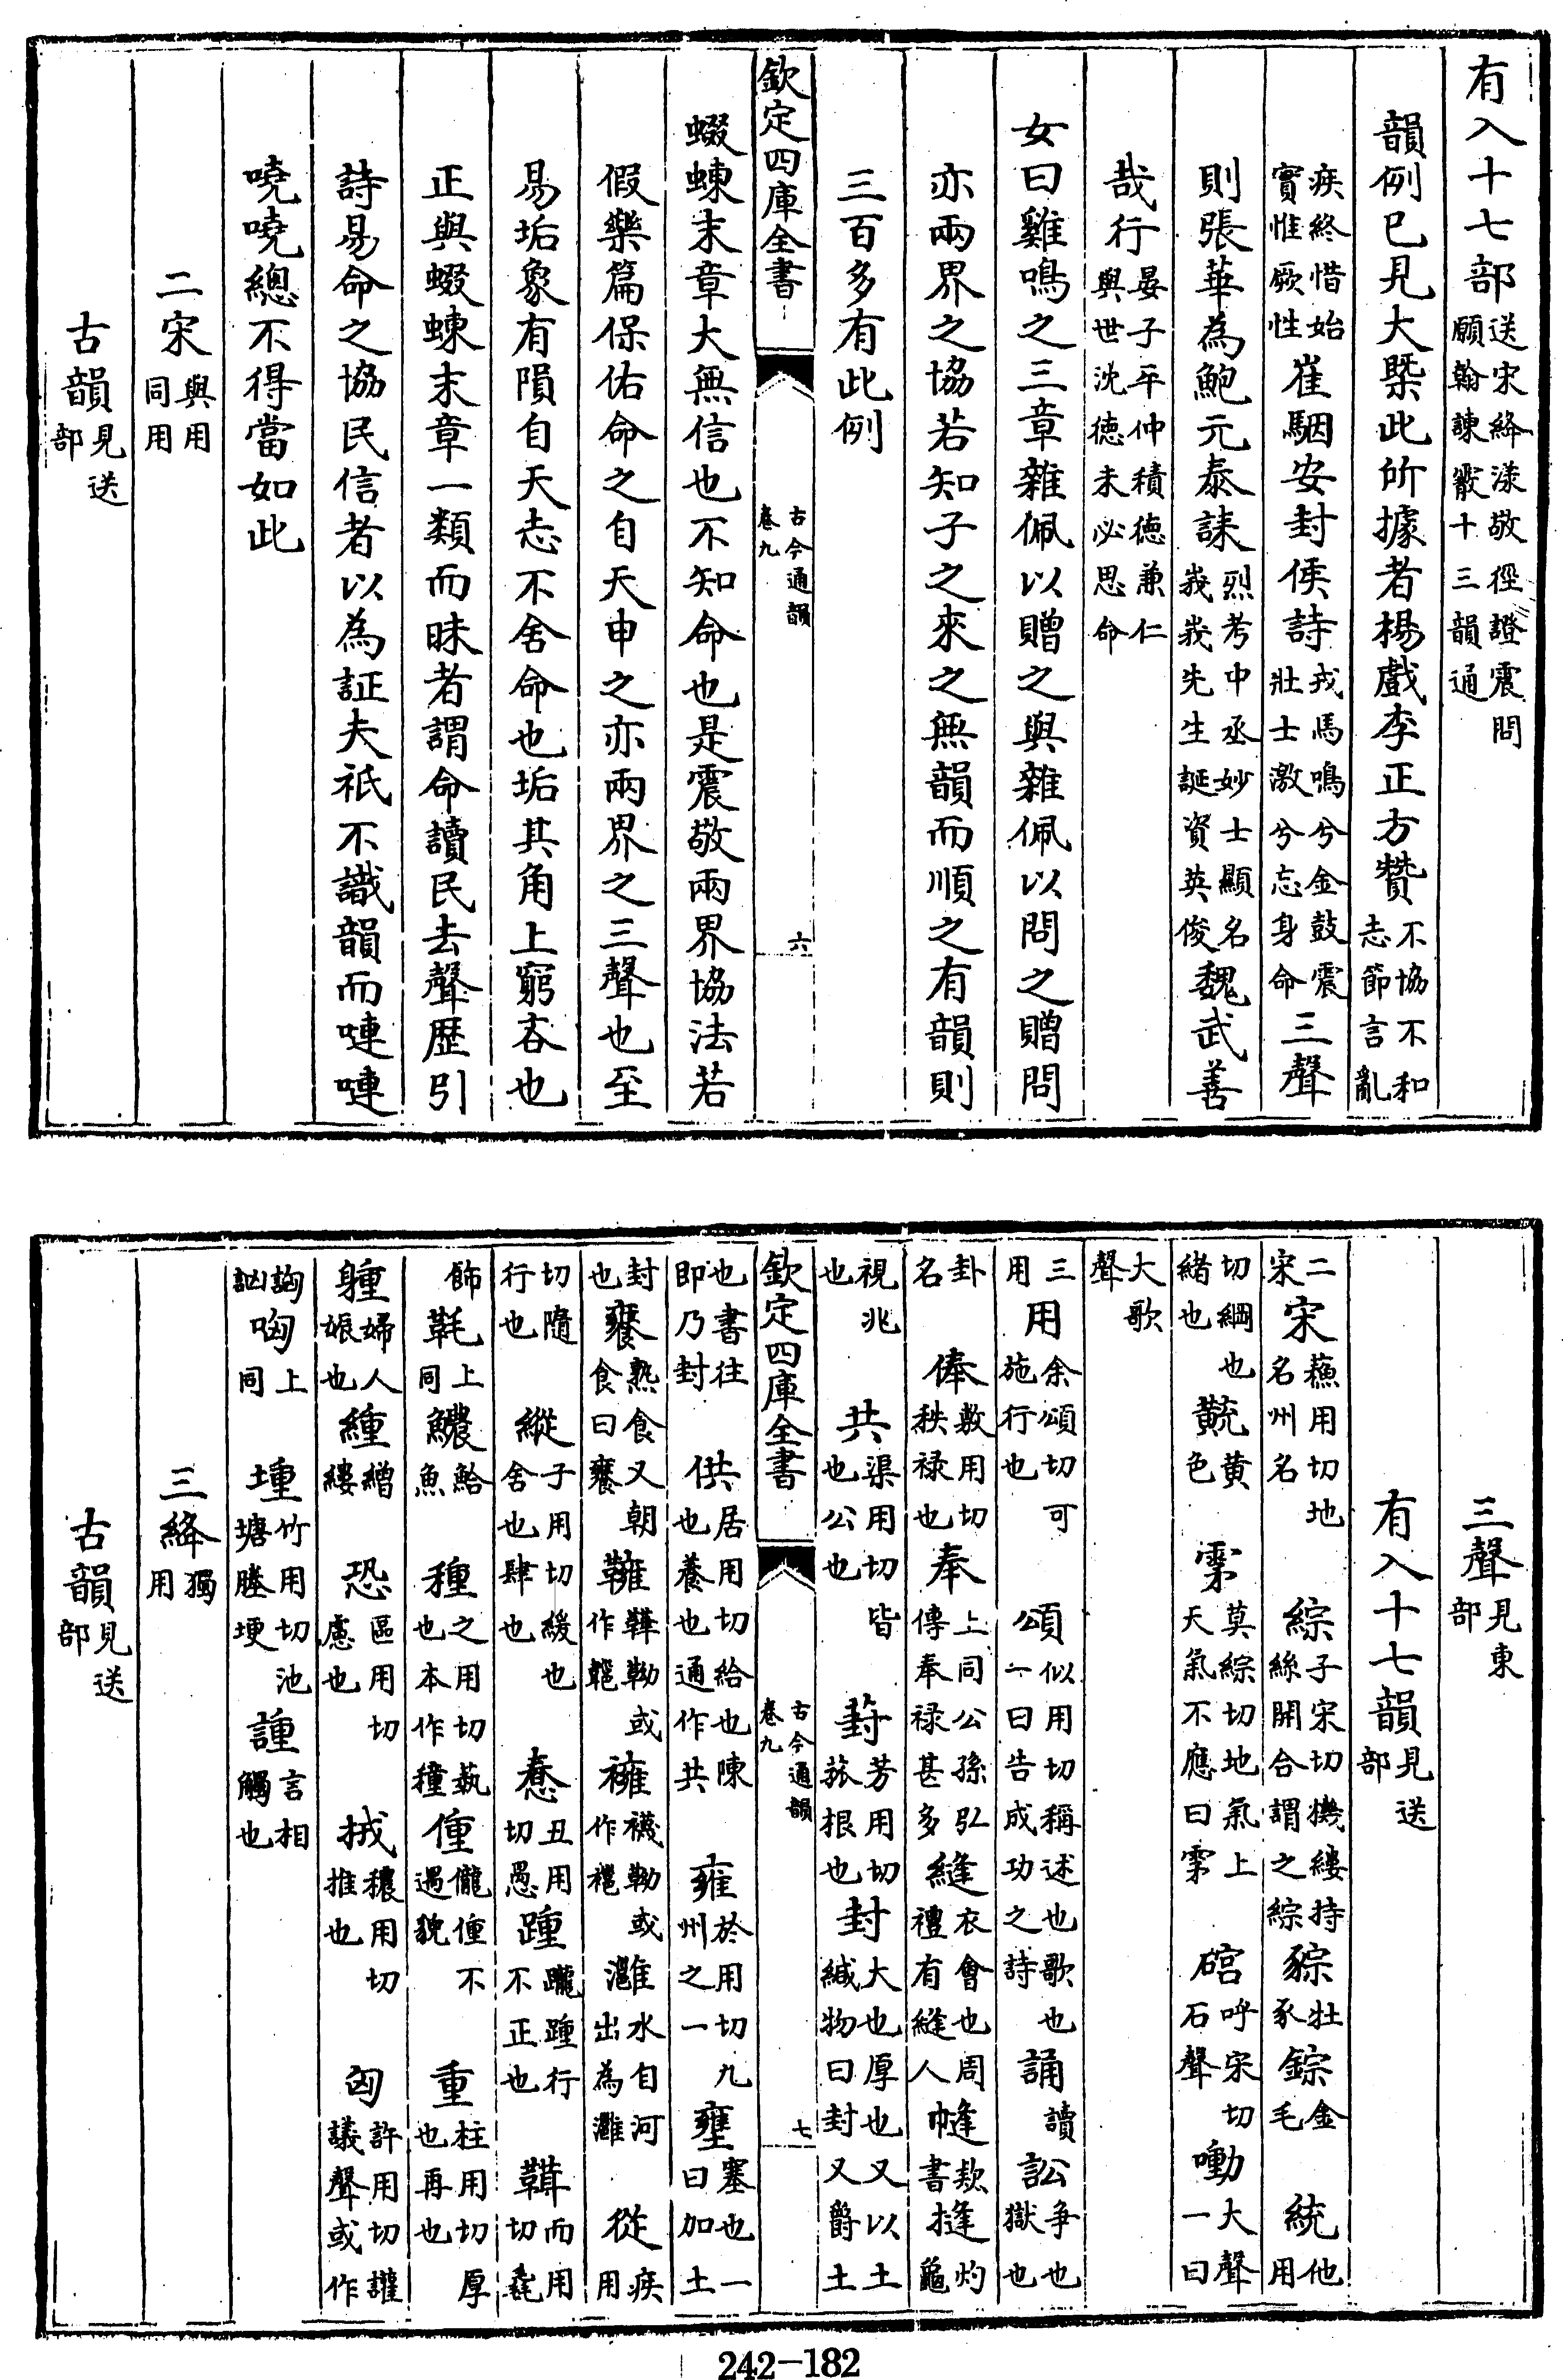 有入十七部送宋絳漾敬徑證震問願翰諫霰十三韻通
韻例已見大槩此所據者楊戲李正方贊不協不和志節言亂
疾終惜始實惟厥性崔駰安封侯詩戎馬鳴兮金鼓震壯士激兮忘身命三聲
則張華為鮑元泰誄烈考中丞妙士顯名我我先生誕資英俊魏武善
哉行晏子平仲積德兼仁與世沈德未必思命
女曰雞鳴之三章雜佩以贈之與雜佩以問之贈問
亦兩界之協若知子之來之無韻而順之有韻則
三百多有此例
欽定四庫全書
古今通韻
卷九
六
蝃蝀末章大無信也不知命也是震敬兩界協法若
假樂篇保佑命之自天申之亦兩界之三聲也至
易垢象有隕自天志不舍命也垢其角上窮吝也
正與蝃蝀末章一類而昧者謂命讀民去聲歷引
詩易命之協民信者以為証夫祇不識韻而嗹嗹
嘵嘵總不得當如此
二宋與用同用
古韻見送部
三聲見東部
有入十七韻見送部
二宋宋蘓用切地名州名 綜子宋切機縷持絲開合謂之綜猔牡豕錝金毛 統他用
切綱也緒也黈黄色 雺莫綜切地氣上天氣不應曰雺 硿呼宋切石聲嘞大聲一曰
大歌聲
三用用余頌切可施行也 頌似用切稱述也歌也一曰告成功之詩誦讀訟爭也獄也
卦名 俸敷用切秩禄也奉上同公孫弘傳奉禄甚多縫衣會也周禮有縫人㡝欵書摓灼龜
視兆也 共渠用切皆也公也 葑芳用切菰根也封大也厚也又以土緘物曰封又爵土
欽定四庫全書
古今通韻
卷九
七
也書往即乃封 供居用切給也陳也養也通作共 雍於用切九州之一壅塞也一曰加土
封也饔熟食又朝食曰饔䩸鞾靿或作䩺襨襪靿或作襱灉水自河出為灉 從疾用
切隨行也 縱子用切緩也舍也肆也 惷丑用切愚踵躘踵行不正也 鞲而用切毳
飾𩊓上同鱵鮐魚 種之用切蓺也本作穜偅儱偅不遇貌 重柱用切厚也再也
䐺婦人娠也緟繒縷 恐區用切慮也 拭穠用切推也 匈許用切讙議聲或作
詾訩哅上同 堹竹用切池塘塍埂諥言相觸也
三絳獨用
古韻見送部
242-182